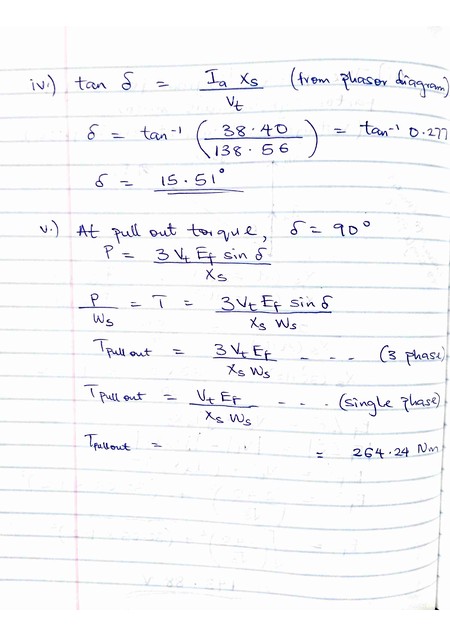 iv.) tan δ = Ia Xs / Vt (from phasor diagram)
δ = tan⁻¹ (38.40 / 138.56) = tan⁻¹ 0.277
δ = 15.51°
v.) At pull out torque, δ = 90°
P = 3 Vt Ef sin δ / Xs
P / Ws = T = 3 Vt Ef sin δ / Xs Ws
Tpull out = 3 Vt Ef / Xs Ws - - - (3 phase)
Tpull out = Vt Ef / Xs Ws - - - (single phase)
Tpullout = = 264.24 Nm